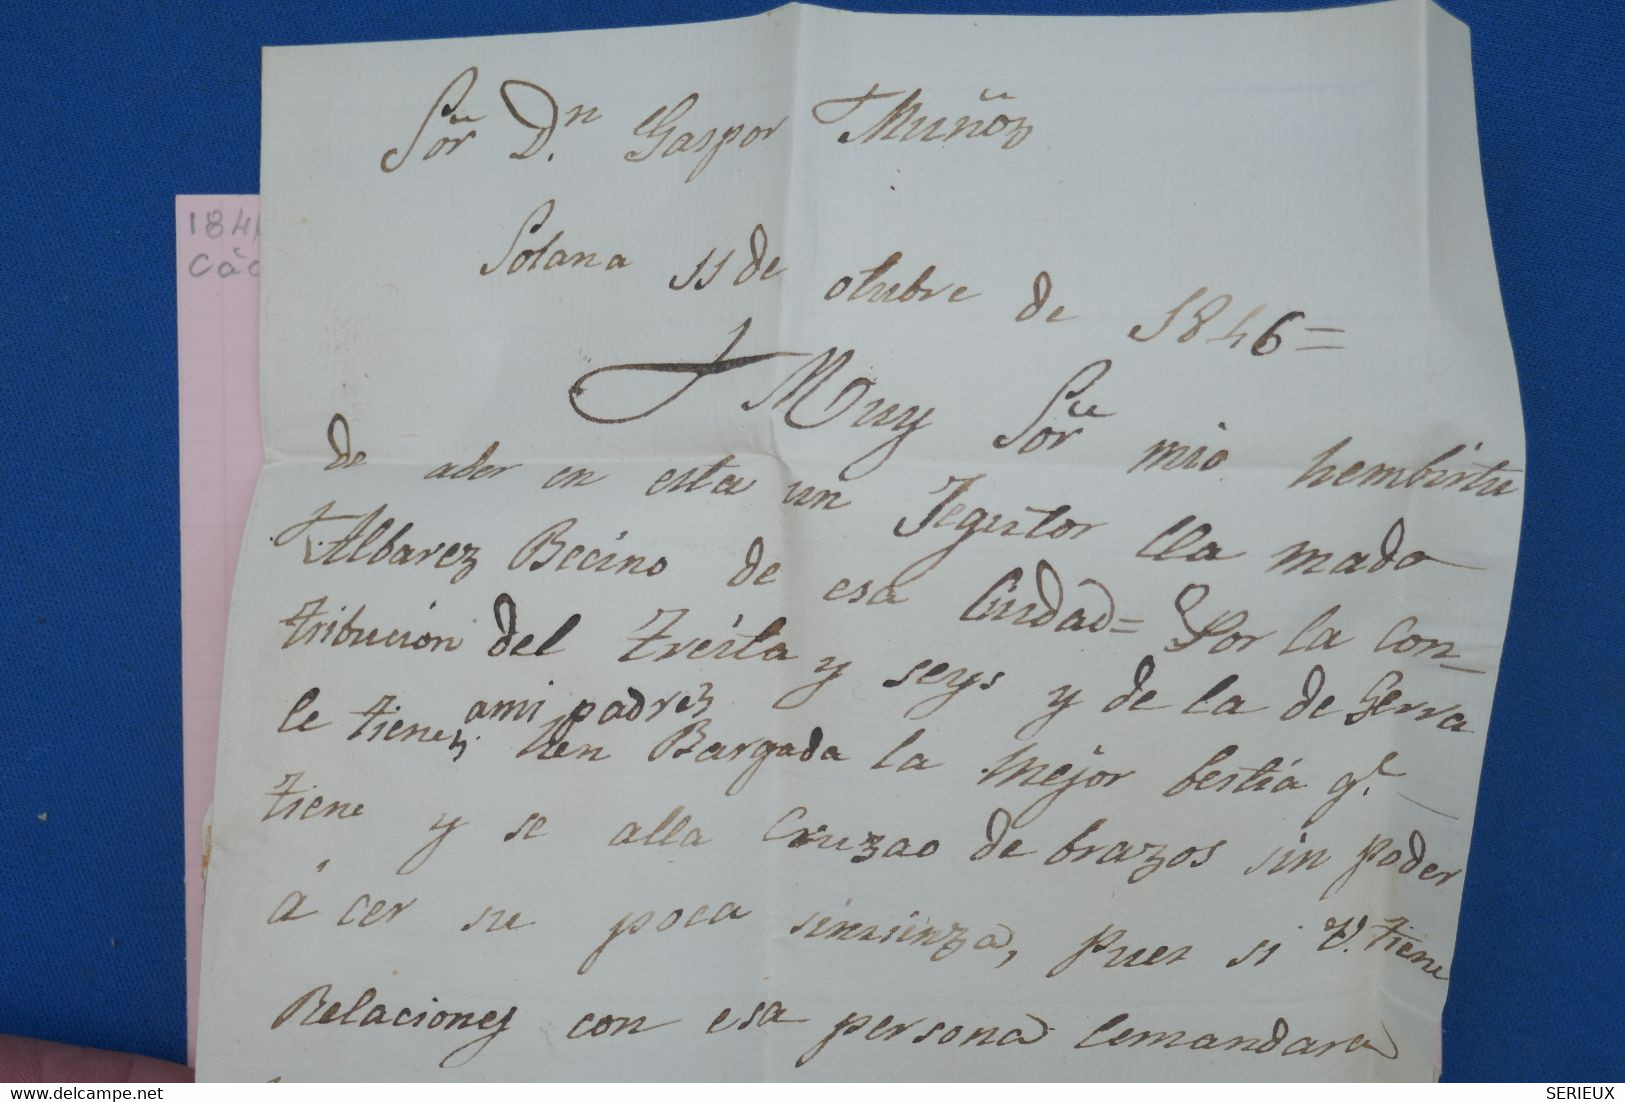 Sor Dn Gaspor Muñoz
Solana 11 de otubre de 1846=
Muy Sor mio hembirtu
de ader en esta un Jegutor lla mado
Albarez Becino de esa Ciudad= Por la Con_
tribucion del treita y seys y de la de Gerra
ami padrez
le tiene, tien Bargada la Mejor bestia q.e
tiene y se alla Cruzao de brazos sin poder
á cer su poca simienza, puez si V. tiene
Relaciones con esa persona lemandara
184
Các
SERIEUX
www.delcampe.net